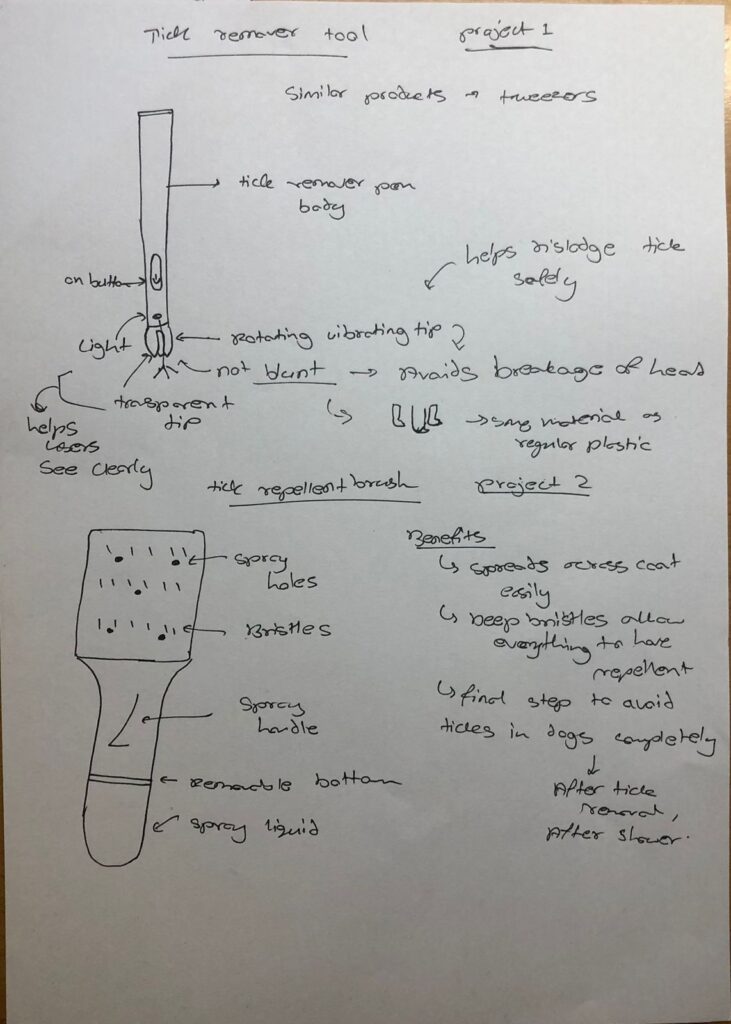 Tick remover tool
project 1
Similar products → tweezers
tick remover pen
body
on button
helps dislodge tick
safely
Light
Rotating vibrating tip
not blunt → Avoids breakage of head
trasparent
tip
helps
users
see clearly
→ same material as
regular plastic
tick repellent brush
project 2
spray
holes
Bristles
spray
handle
removable bottom
spray liquid
Benefits
↳ spreads across coat
easily
↳ Deep bristles allow
everything to have
repellent
↳ final step to avoid
ticks in dogs completely
↓
After tick
removal,
After shower.